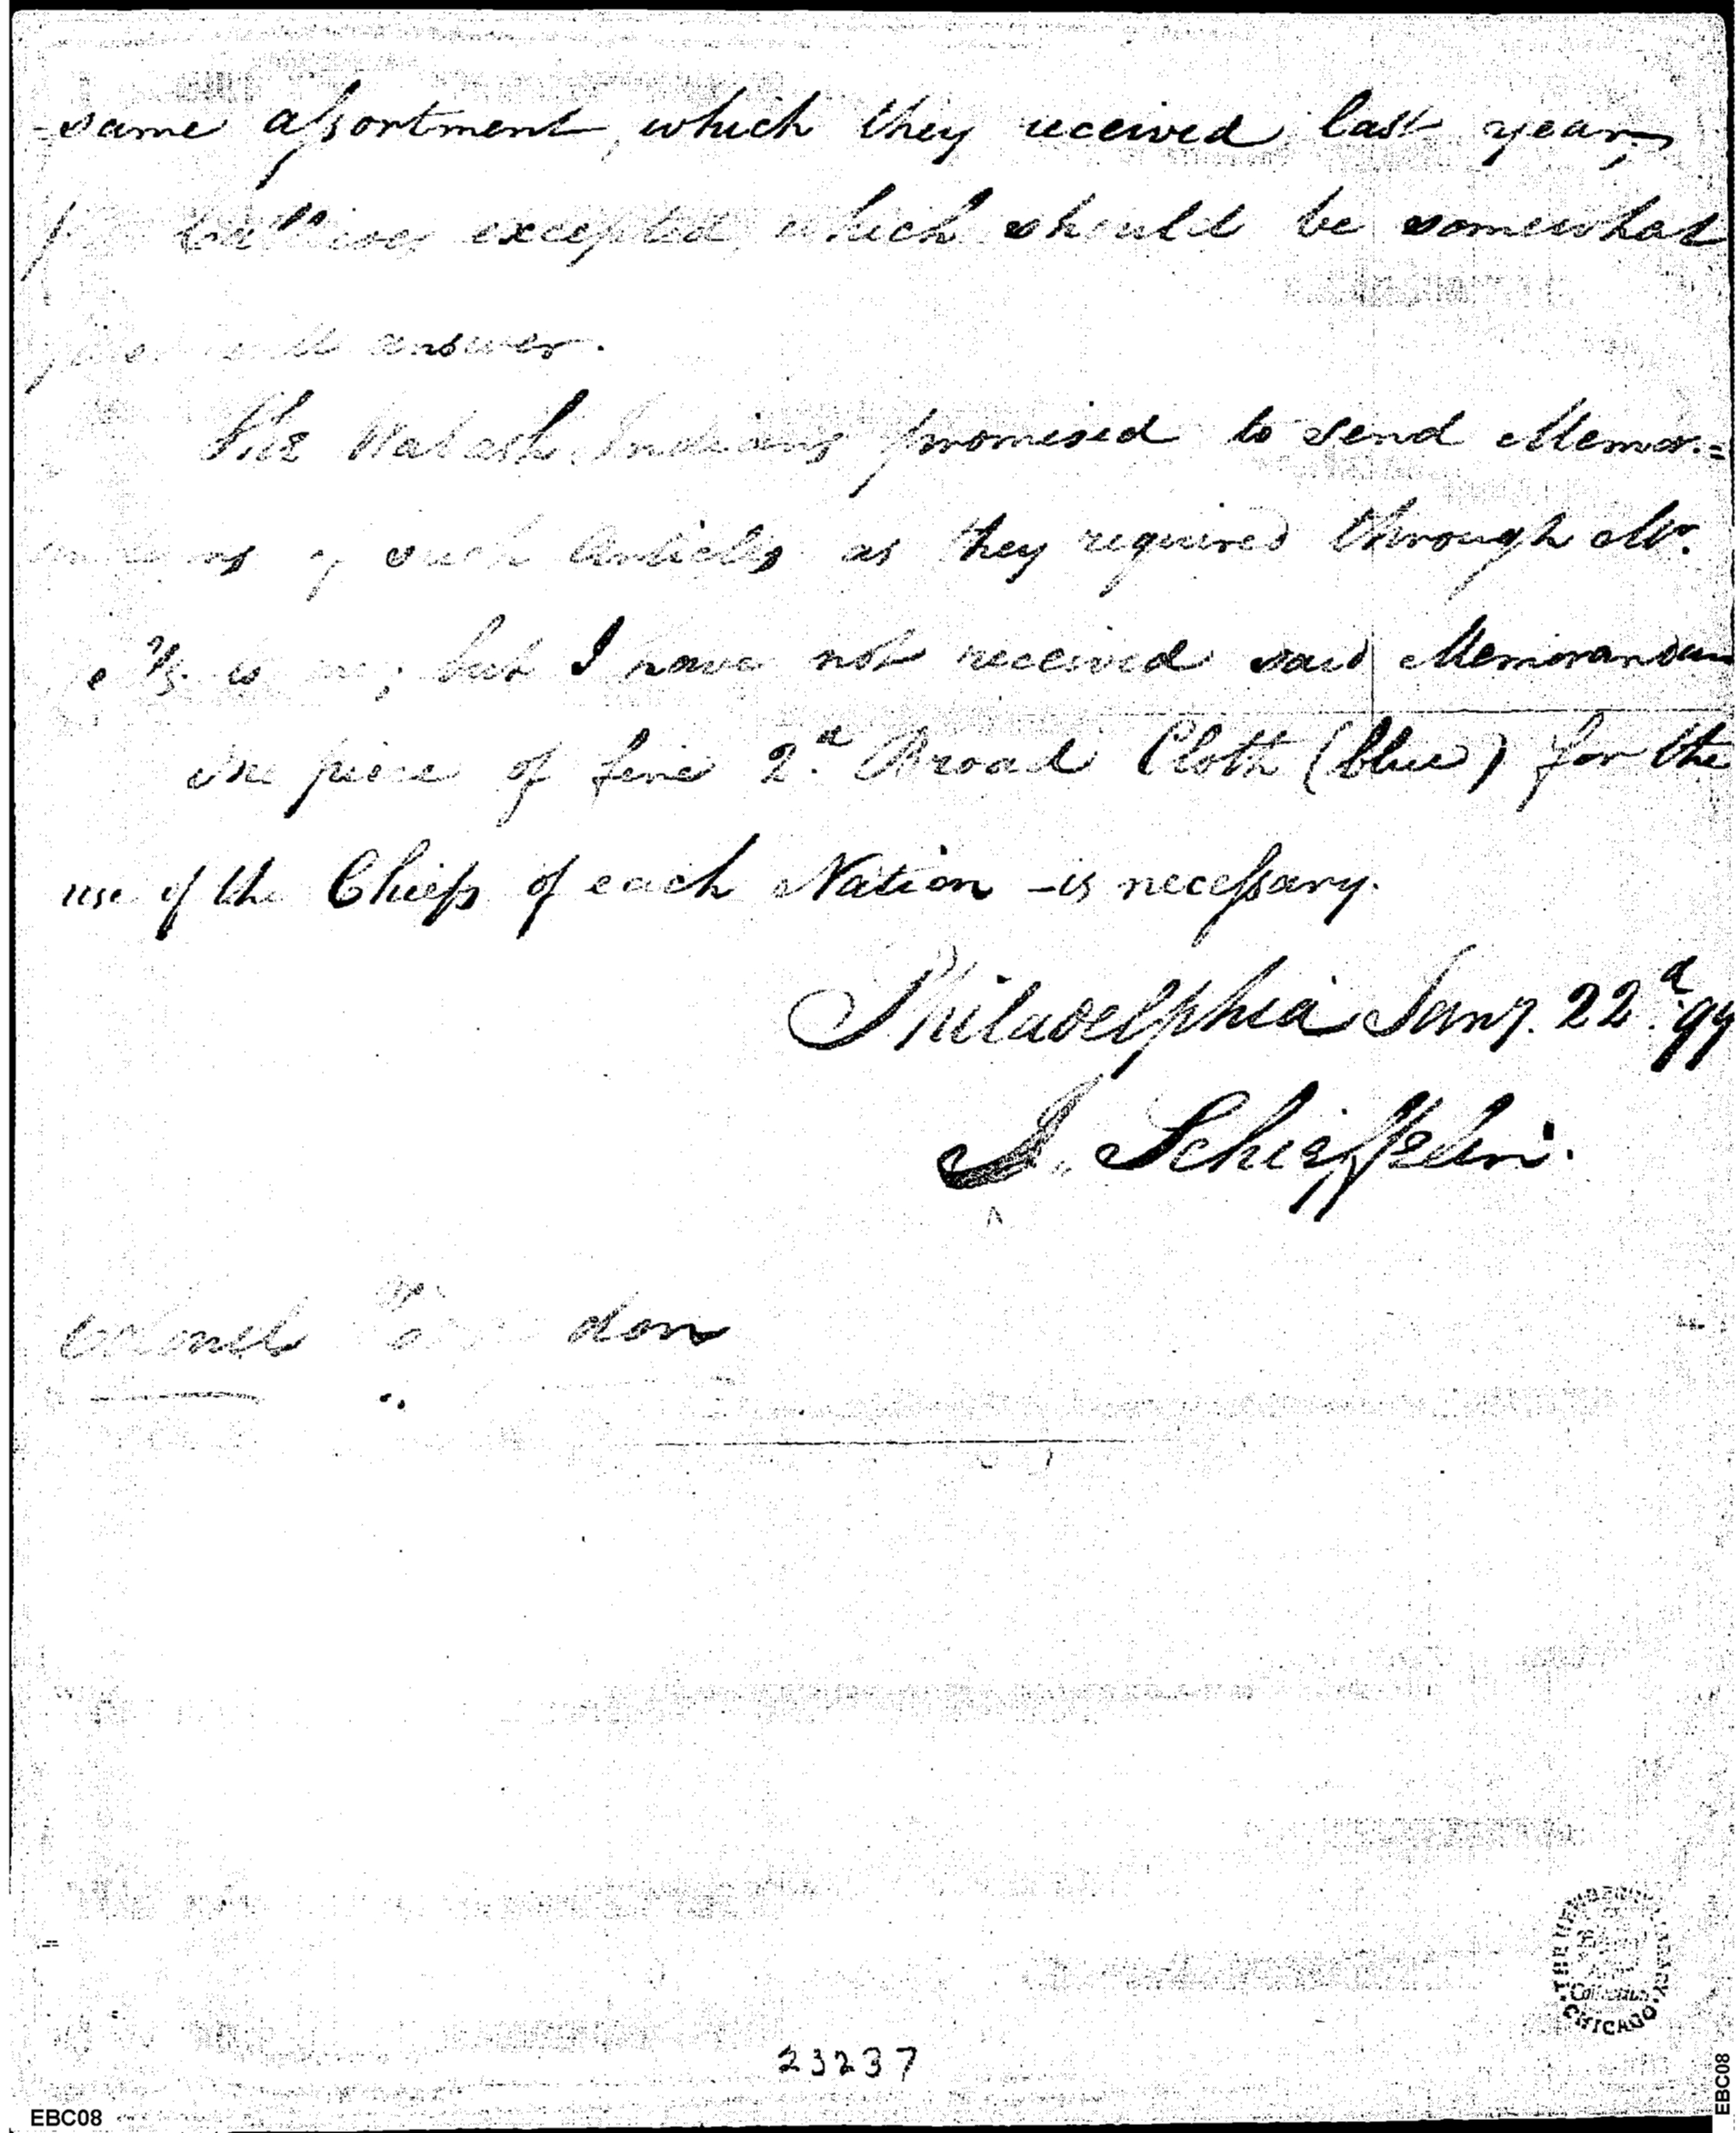 same assortment, which they received last year,
excepted, which should be somewhat
will answer.
The Wabash Indians promised to send Memor.=
of such Articles as they required through Mr.
but I have not received said Memorandum
One piece of fine 2.d Broad Cloth (blue) for the
use of the Chiefs of each Nation - is necessary.
Philadelphia Jany. 22.d 99
J. Schieffelin.
Colonel
THE NEWBERRY LIBRARY
Collection
CHICAGO
23237
EBC08
EBC08